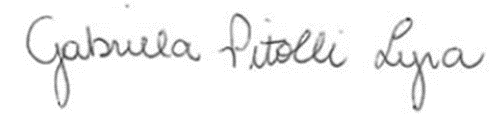 Gabriella Pitolli Lyra